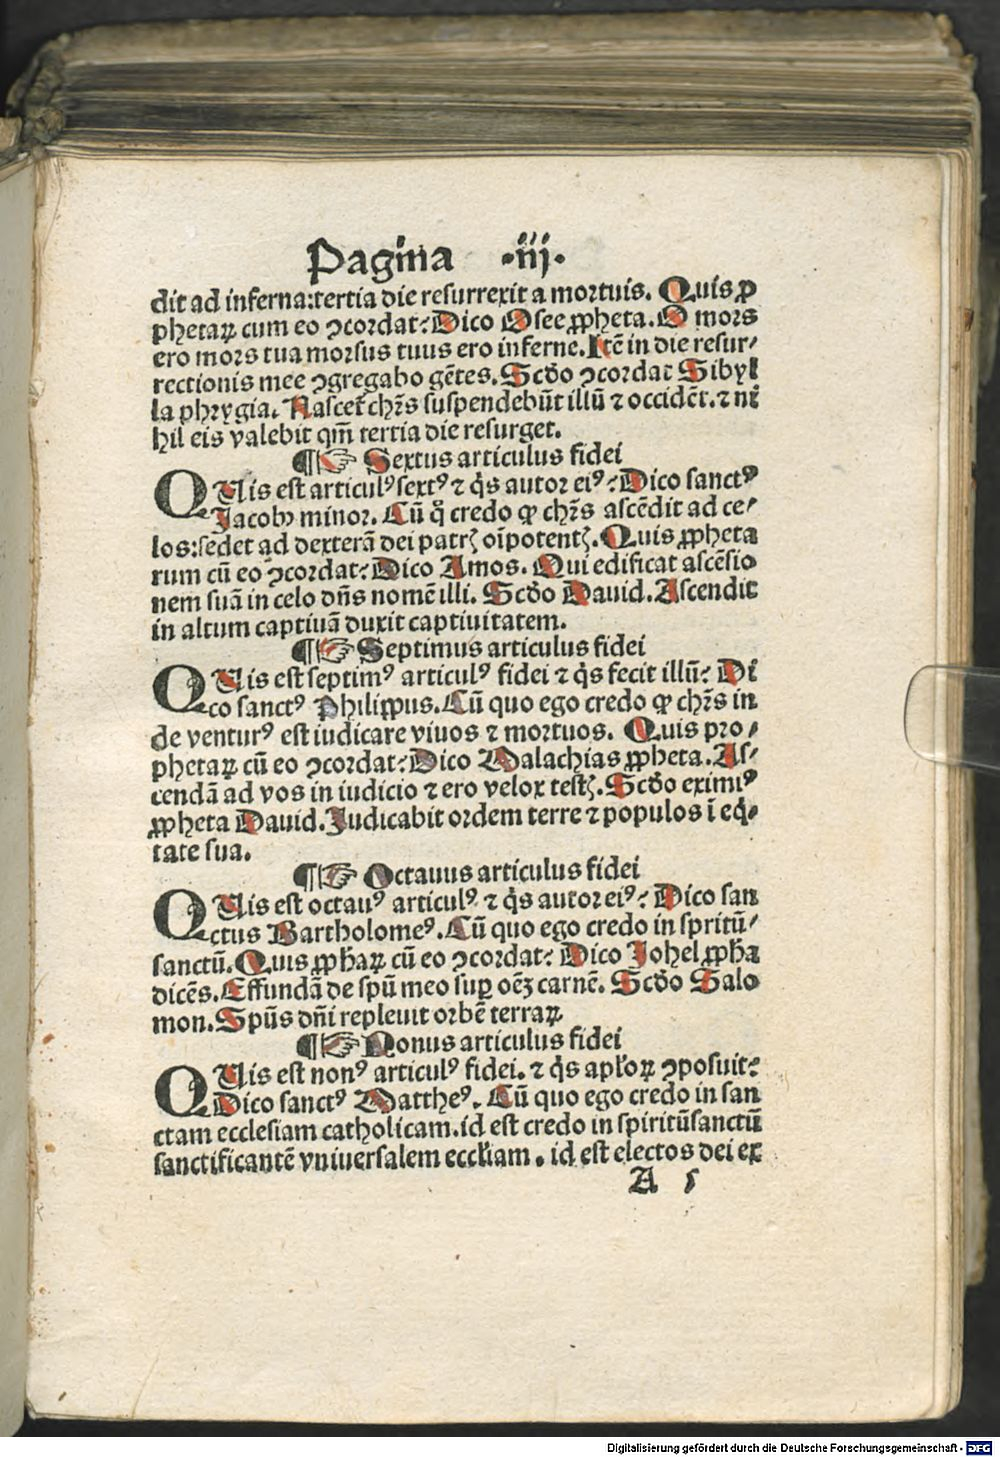 Pagina .iij.
dit ad inferna:tertia die resurrexit a mortuis. Quis ꝓ
phetaꝝ cum eo ꝯcordat: Dico Osee ꝓpheta. O mors
ero mors tua morsus tuus ero inferne. Itē in die resur⸗
rectionis mee ꝯgregabo gētes. Scd́o ꝯcordat Sibyl
la phrygia. Nascet᷑ chr̄s suspendebūt illū ⁊ occidēt. ⁊ ni
hil eis valebit qm̄ tertia die resurget.
¶☞ Sextus articulus fidei
QUis est articulꝰ sextꝰ ⁊ q̇s autor eiꝰ: Dico sanctꝰ
Jacobꝰ minor. Cū q̊ credo ꝙ chr̄s ascēdit ad ce⸗
los:sedet ad dexterā dei patrꝭ oīpotentꝭ. Quis ꝓpheta
rum cū eo ꝯcordat: Dico Amos. Qui edificat ascēsio
nem suā in celo dn̄s nomē illi. Scd́o Dauid. Ascendit
in altum captiuā duxit captiuitatem.
¶☞ Septimus articulus fidei
QUis est septimꝰ articulꝰ fidei ⁊ q̇s fecit illū: Di
co sanctꝰ Philippus. Cū quo ego credo ꝙ chr̄s in
de venturꝰ est iudicare viuos ⁊ mortuos. Quis pro⸗
phetaꝝ cū eo ꝯcordat: Dico Malachias ꝓpheta. As⸗
cendā ad vos in iudicio ⁊ ero velox testꝭ. Scd́o eximiꝰ
ꝓpheta Dauid. Judicabit ordem terre ⁊ populos ī eq̇⸗
tate sua.
¶☞ Octauus articulus fidei
QUis est octauꝰ articulꝰ ⁊ q̇s autor eiꝰ: Dico san
ctus Bartholomeꝰ. Cū quo ego credo in spritū⸗
sanctū. Quis ꝓph̄aꝝ cū eo ꝯcordat: Dico Johel ꝓph̄a
dicēs. Effundā de spū meo suꝑ oēꝫ carnē. Scd́o Salo
mon. Spūs dn̄i repleuit orbē terraꝝ
¶☞ Nonus articulus fidei
QUis est nonꝰ articulꝰ fidei. ⁊ q̇s apl̄oꝝ ꝯposuit:
Dico sanctꝰ Mattheꝰ. Cū quo ego credo in san
ctam ecclesiam catholicam. id est credo in spiritūsanctū
sanctificantē vniuersalem eccl̄iam. id est electos dei ex
A
Digitalisierung gefördert durch die Deutsche Forschungsgemeinschaft - DFG